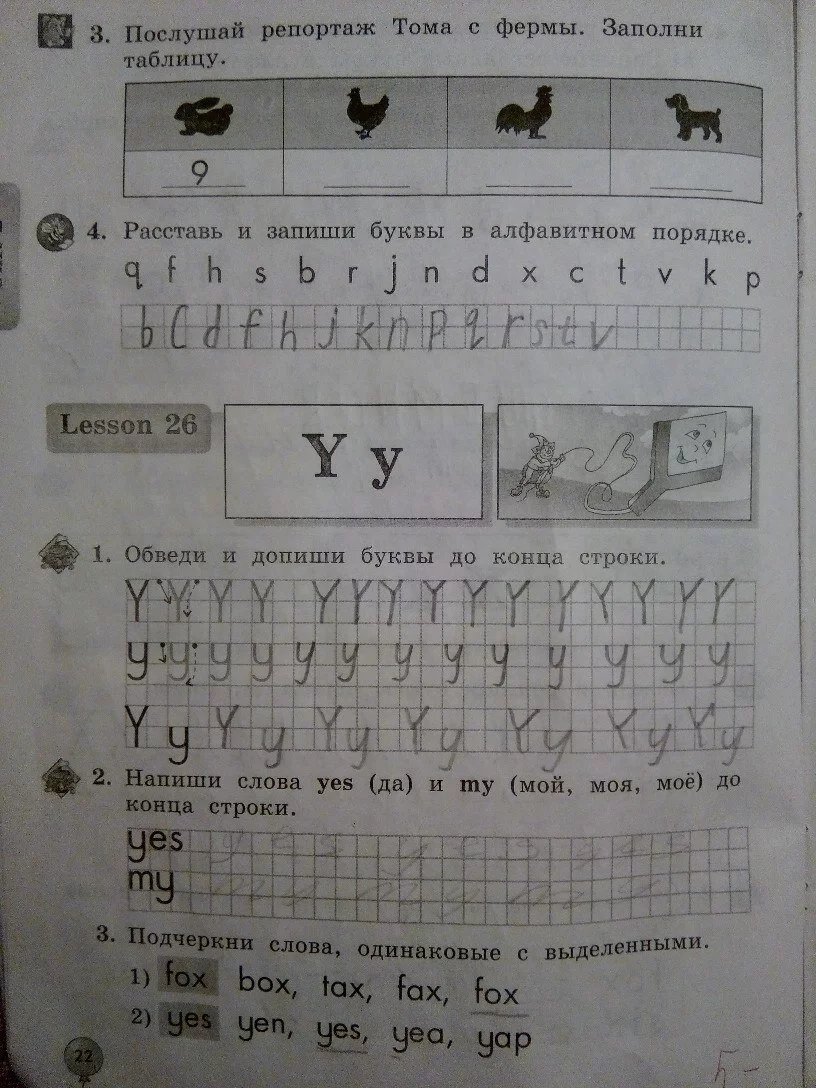 3. Послушай репортаж Тома с фермы. Заполни
таблицу.
9
4. Расставь и запиши буквы в алфавитном порядке.
q f h s b r j n d x c t v k p
b c d f h j k n p q r s t v
Lesson 26
Y y
1. Обведи и допиши буквы до конца строки.
Y Y Y Y Y Y Y Y Y Y Y Y Y Y Y
y y y y y y y y y y y y y
Y y Y y Y y Y y Y y Y y Y y
2. Напиши слова yes (да) и my (мой, моя, моё) до
конца строки.
yes yes yes yes
my my my my
3. Подчеркни слова, одинаковые с выделенными.
1) fox box, tax, fax, fox
2) yes yen, yes, yea, yap
22
5-